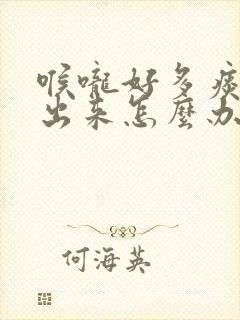 喉嚨好多痰
出来怎麼办
何海英